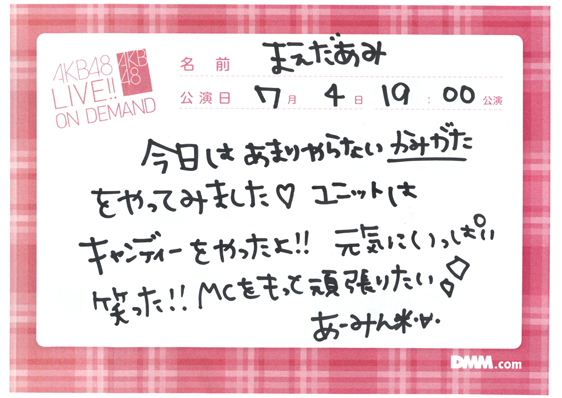 AKB48
LIVE!!
ON DEMAND
AKB
48
名前 まえだあみ
公演日 7月4日 19:00公演
今日はあまりやらないかみがた
をやってみました♡ ユニットは
キャンディーをやったよ!! 元気にいっぱい
笑った!! MCをもっと頑張りたい
あーみん米・v・
DMM.com